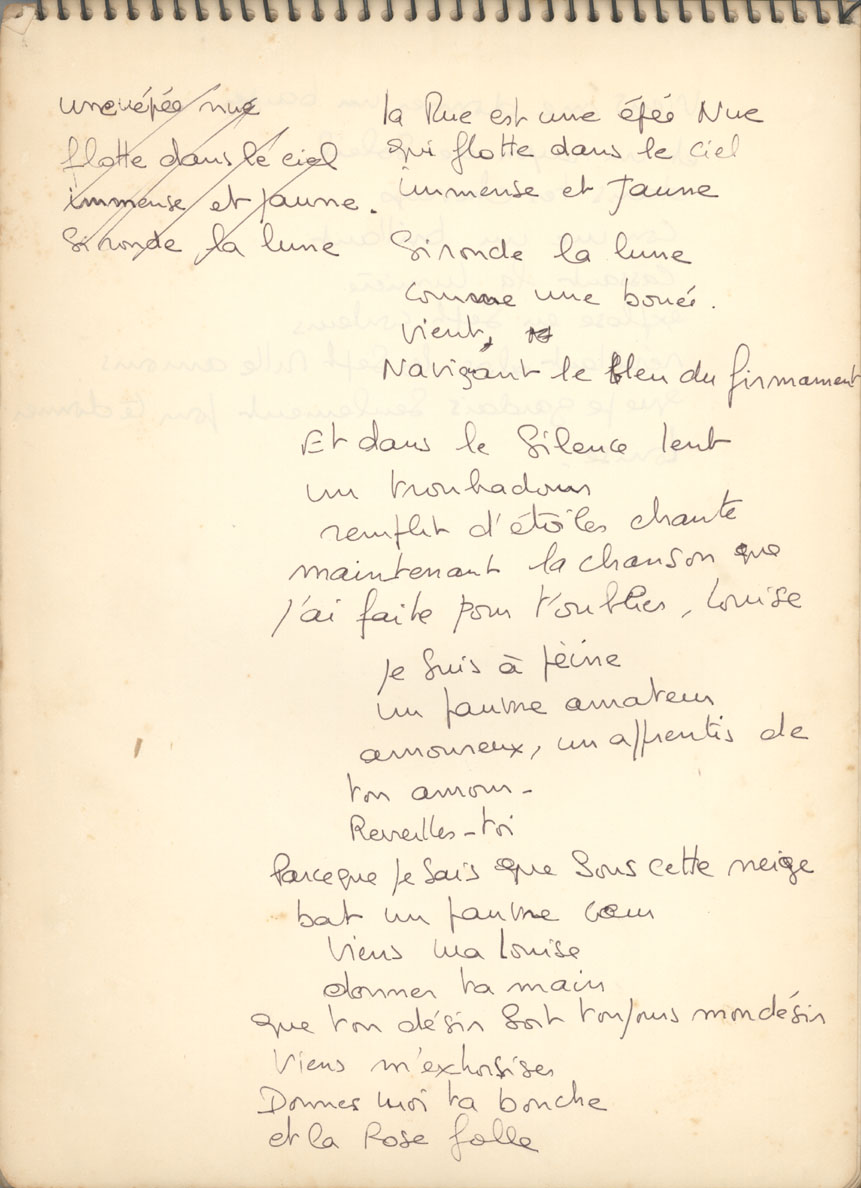 une épée nue
flotte dans le ciel
immense et jaune.
Gironde la lune
la Rue est une épée Nue
qui flotte dans le ciel
immense et Jaune
Gironde la lune
comme une boueé.
vient,
Navigant le bleu du firmament
Et dans le Silence lent
un troubadour
remplit d'étoîles chante
maintenant la chanson que
j'ai faite pour t'oublier, Louise
Je suis à pèine
un pauvre amateur
amoureux, un apprentis de
ton amour-
Reveilles-toi
Parceque Je Sais que Sous cette neige
bat un pauvre coeur
Viens ma Louise
donner ta main
que ton désir Soit toujours mon désir
Viens m'exhorsiser
Donnes moi ta bouche
et la Rose folle